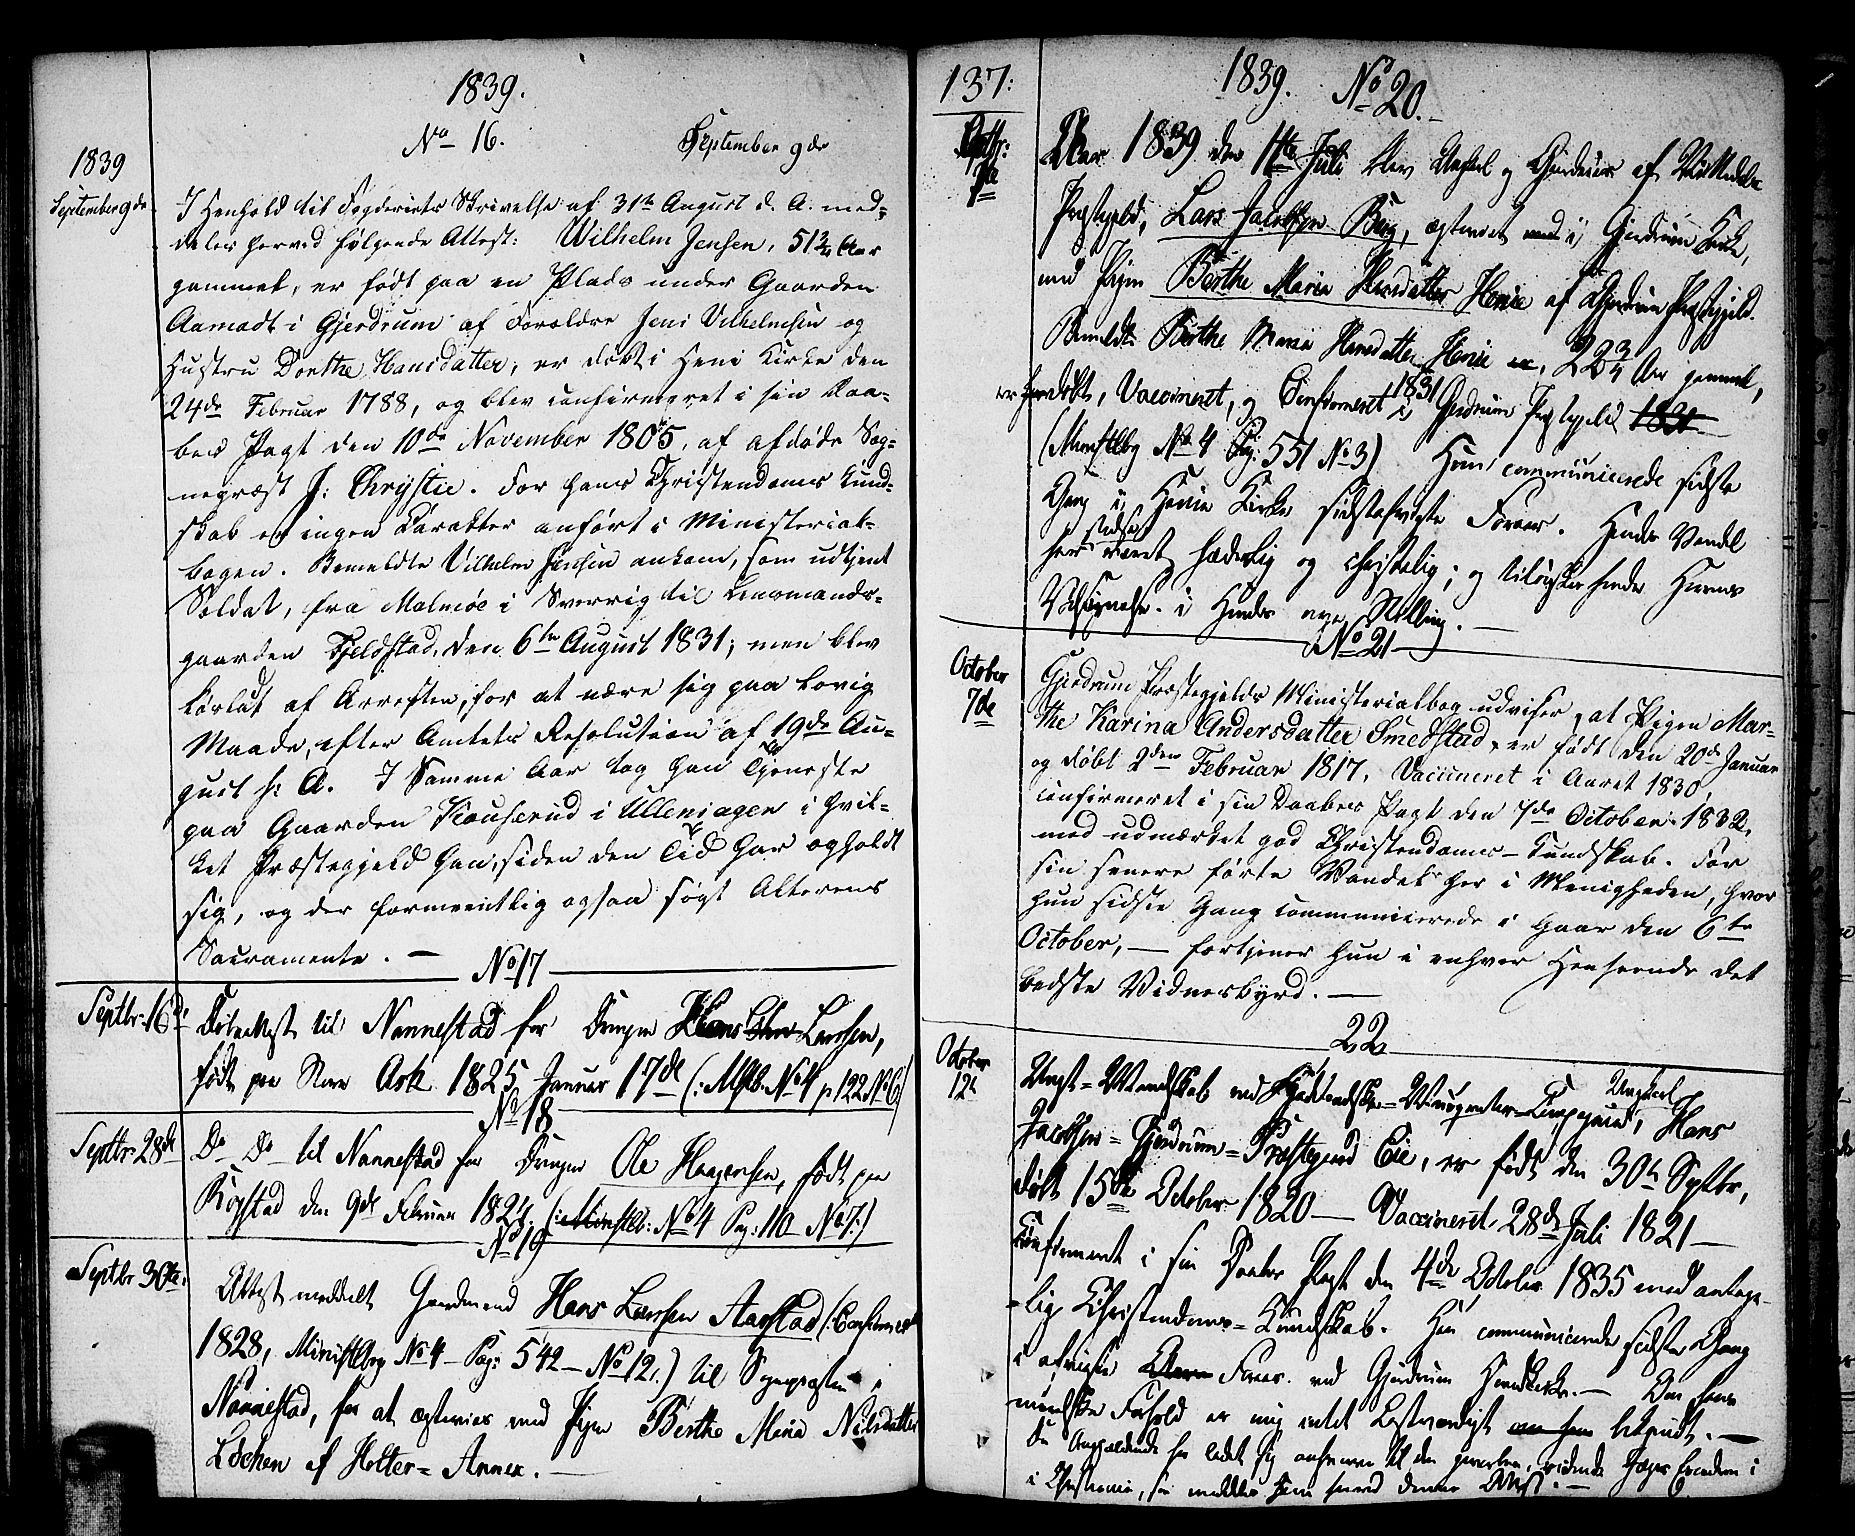 1839.
No 16.
September 9de
1839
September 9de
I Henhold til Fogderiets Skrivelse af 31te August d. A. med-
deles herved følgende Attest: Wilhelm Jensen, 51 3/4 Aar
gammel, er født paa en Plads under Gaarden
Aamodt i Gjerdrum af Forældre Jens Vilhelmsen og
Hustru Dorthe Hansdatter, er døbt i Heni Kirke den
24de Februar 1788, og blev confirmeret i sin Daa-
bes Pagt den 10de November 1805, af afdøde Sog-
nepræst J: Chrystie. For hans Christendoms Kund-
skab er ingen Karakter anført i Ministerial-
bogen. Bemeldte Vilhelm Jensen ankom, som udtjent
Soldat, fra Malmöe i Sverrig til Lensmands-
gaarden Fjeldstad, den 6te August 1831; men blev
løsladt af Arresten, for at nære sig paa lovlig
Maade, efter Amtets Resolution af 19de Au-
gust s: A. I Samme Aar tog han Tjeneste
paa Gaarden Kauserud i Ullensager i hvil-
ket Præstegjeld han, siden den Tid har opholdt
sig, og der formeentlig ogsaa søgt Alterens
Sacramente. —
No 17
Septbr: 16de
til Nannestad for Drengen Hans Larssen,
født paa Store Ask 1825 Januar 17de (: Mstb. No 4 p. 122 No 6)
No 18
Septbr 28de
Do Do til Nannestad for Drengen Ole Haagensen, født paa
Kogstad den 9de Februar 1824. (: Ministlb: No 4 Pag: 110 No 7:)
No 19
Septbr 30te.
Attest meddelt Gaardmand Hans Larssen Aarstad (: Confirmeret
1828, Ministlbog No 4 – Pag: 542 – No 12.) til Sognepræsten i
Nannestad, for at ægtevies med Pigen Berthe Maria Nilsdatter
Løchen af Holter-Annex. —
137:
1839. No 20.
Octbr:
1te
Aar 1839 den 11te Juli blev Ungkarl og Gaardbruger af
Præstegjeld, Lars Jacobsen Berg, ægteviet i Gjerdrum Kirke,
med Pigen Berthe Maria Hansdatter Henie af Gjerdrum Præstegjeld.
Bemeldte Berthe Maria Hansdatter Henie er, 22 3/4 Aar gammel,
er døbt, Vaccineret, og Confirmeret 1831 i Gjerdrum Præstegjeld 1831
(Ministlbog No 4 Pag: 551 No 3) Hun communicerede sidste
Gang i Henie Kirke sidstafvigte Foraar. Hendes Vandel
har stedse været hæderlig og christelig; og tilønskes hende Herrens
Velsignelse i Hendes nye Stilling. —
No 21
October
7de
Gjerdrum Præstegjelds Ministerialbog udviser, at Pigen Mar-
the Karina Andersdatter Smedstad, er født den 20de Januar
og døbt 2den Februar 1817, Vaccineret i Aaret 1830,
confirmeret i sin Daabes Pagt den 7de October 1832,
med udmærket god Christendoms-Kundskab. For
sin senere førte Vandel her i Menigheden, hvor
hun sidste Gang communicerede i Gaar den 6te
October, — fortjener hun i enhver Henseende det
bedste Vidnesbyrd. —
22
October
12te
Ungkarl, Hans
Jacobsen Gjerdrum-Præstegaard Eie, er født den 30te Septbr,
døbt 15de October 1820 — Vaccineret 28de Juli 1821 —
Confirmeret i sin Daabes Pagt den 4de October 1835 med antage-
lig Christendoms-Kundskab. Han communicerede sidste Gang
i afvigte Foraar ved Gjerdrum Hovedkirke. — Om hans
moralske Forhold er mig intet Lastværdigt bekjendt. —
Da Angjeldende har ladet sig antegne til den ridende Jæger
i Christiania, saa meddeles ham herved denne Attest. —